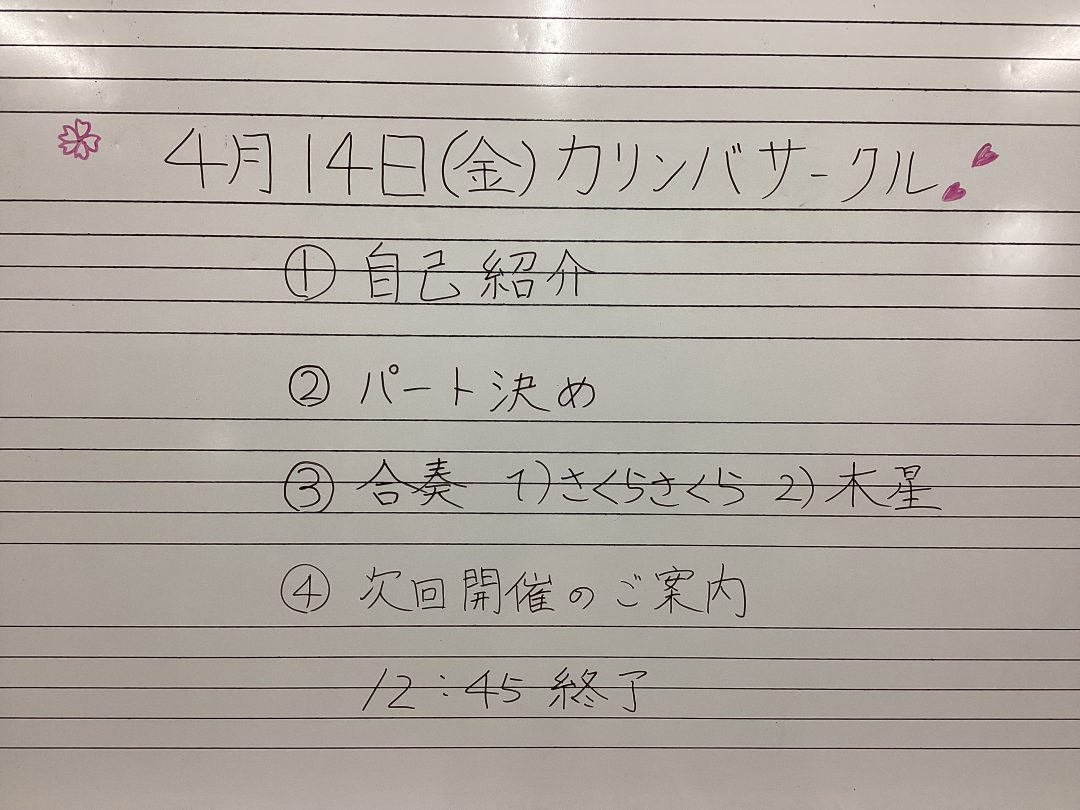 4月14日(金)カリンバサークル
① 自己紹介
② パート決め
③ 合奏 1)さくらさくら 2)木星
④ 次回開催のご案内
12:45 終了